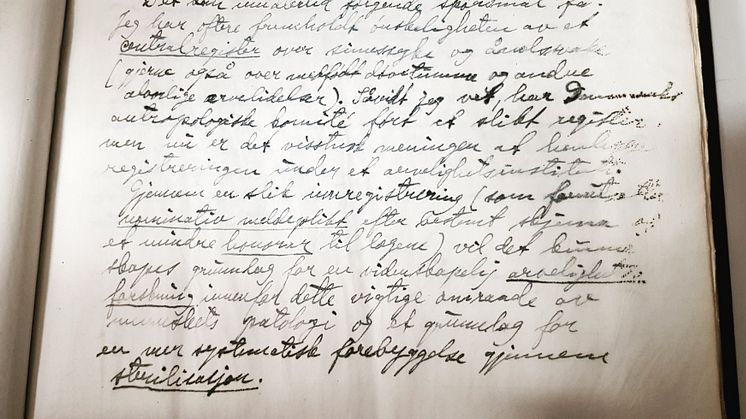 Det som
Jeg har oftere fremholdt ønskeligheten av et
centralregister over sinnssyke og åndssvake
(gjerne også over medfødt døvstumme og andre
arvelige lidelser). Såvidt jeg vet, har Danmarks
antropologiske komité ført et slikt register,
men nu er det visstnok meningen at henlegge
registreringen under et arvelighetsinstitut.
Gjennem en slik innregistrering (som forutsetter
nominativ meldeplikt efter bestemt skjema og
et mindre honorar til lægene) vil det kunne
skapes grunnlag for en videnskapelig arvelighets-
forskning innenfor dette vigtige omraade av
menneskets patologi og et grunnlag for
en mer systematisk forebyggelse gjennem
sterilisasjon.